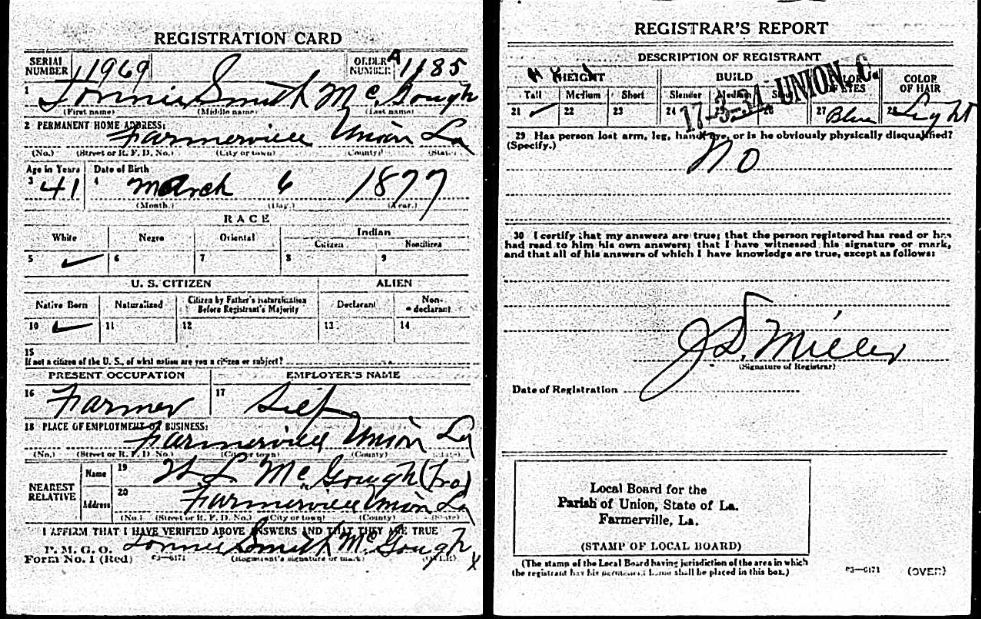 REGISTRATION CARD
SERIAL NUMBER 1969 ORDER NUMBER A1185
1 Lonnie Smith McGough
(First name) (Middle name) (Last name)
2 PERMANENT HOME ADDRESS:
Farmerville Union La
(No.) (Street or R. F. D. No.) (City or town) (County) (State)
Age in Years Date of Birth
3 41 4 March 6 1877
(Month.) (Day.) (Year.)
RACE
White Negro Oriental Indian
Citizen Noncitizen
5 ✓ 6 7 8 9
U. S. CITIZEN ALIEN
Native Born Naturalized Citizen by Father's Naturalization Before Registrant's Majority Declarant Non-declarant
10 ✓ 11 12 13 14
15
If not a citizen of the U. S., of what nation are you a citizen or subject?
PRESENT OCCUPATION EMPLOYER'S NAME
16 Farmer 17 Self
18 PLACE OF EMPLOYMENT OR BUSINESS:
Farmerville Union La
(No.) (Street or R. F. D. No.) (City or town) (County) (State)
NEAREST RELATIVE Name 19 McGough (Bro)
Address 20 Farmerville Union La
(No.) (Street or R. F. D. No.) (City or town) (County) (State)
I AFFIRM THAT I HAVE VERIFIED ABOVE ANSWERS AND THAT THEY ARE TRUE
P. M. G. O.
Form No. 1 (Red) Lonnie Smith McGough
(Registrant's signature or mark) (OVER)
REGISTRAR'S REPORT
DESCRIPTION OF REGISTRANT
HEIGHT BUILD COLOR OF EYES COLOR OF HAIR
Tall Medium Short Slender Medium
21 ✓ 22 23 24 27 Blue 28 Light
17-3-54 UNION C.
29 Has person lost arm, leg, hand, eye, or is he obviously physically disqualified?
(Specify.) No
30 I certify that my answers are true; that the person registered has read or has
had read to him his own answers; that I have witnessed his signature or mark,
and that all of his answers of which I have knowledge are true, except as follows:
J. D. Miller
(Signature of Registrar)
Date of Registration
Local Board for the
Parish of Union, State of La.
Farmerville, La.
(STAMP OF LOCAL BOARD)
(The stamp of the Local Board having jurisdiction of the area in which
the registrant has his permanent home shall be placed in this box.)
(OVER)